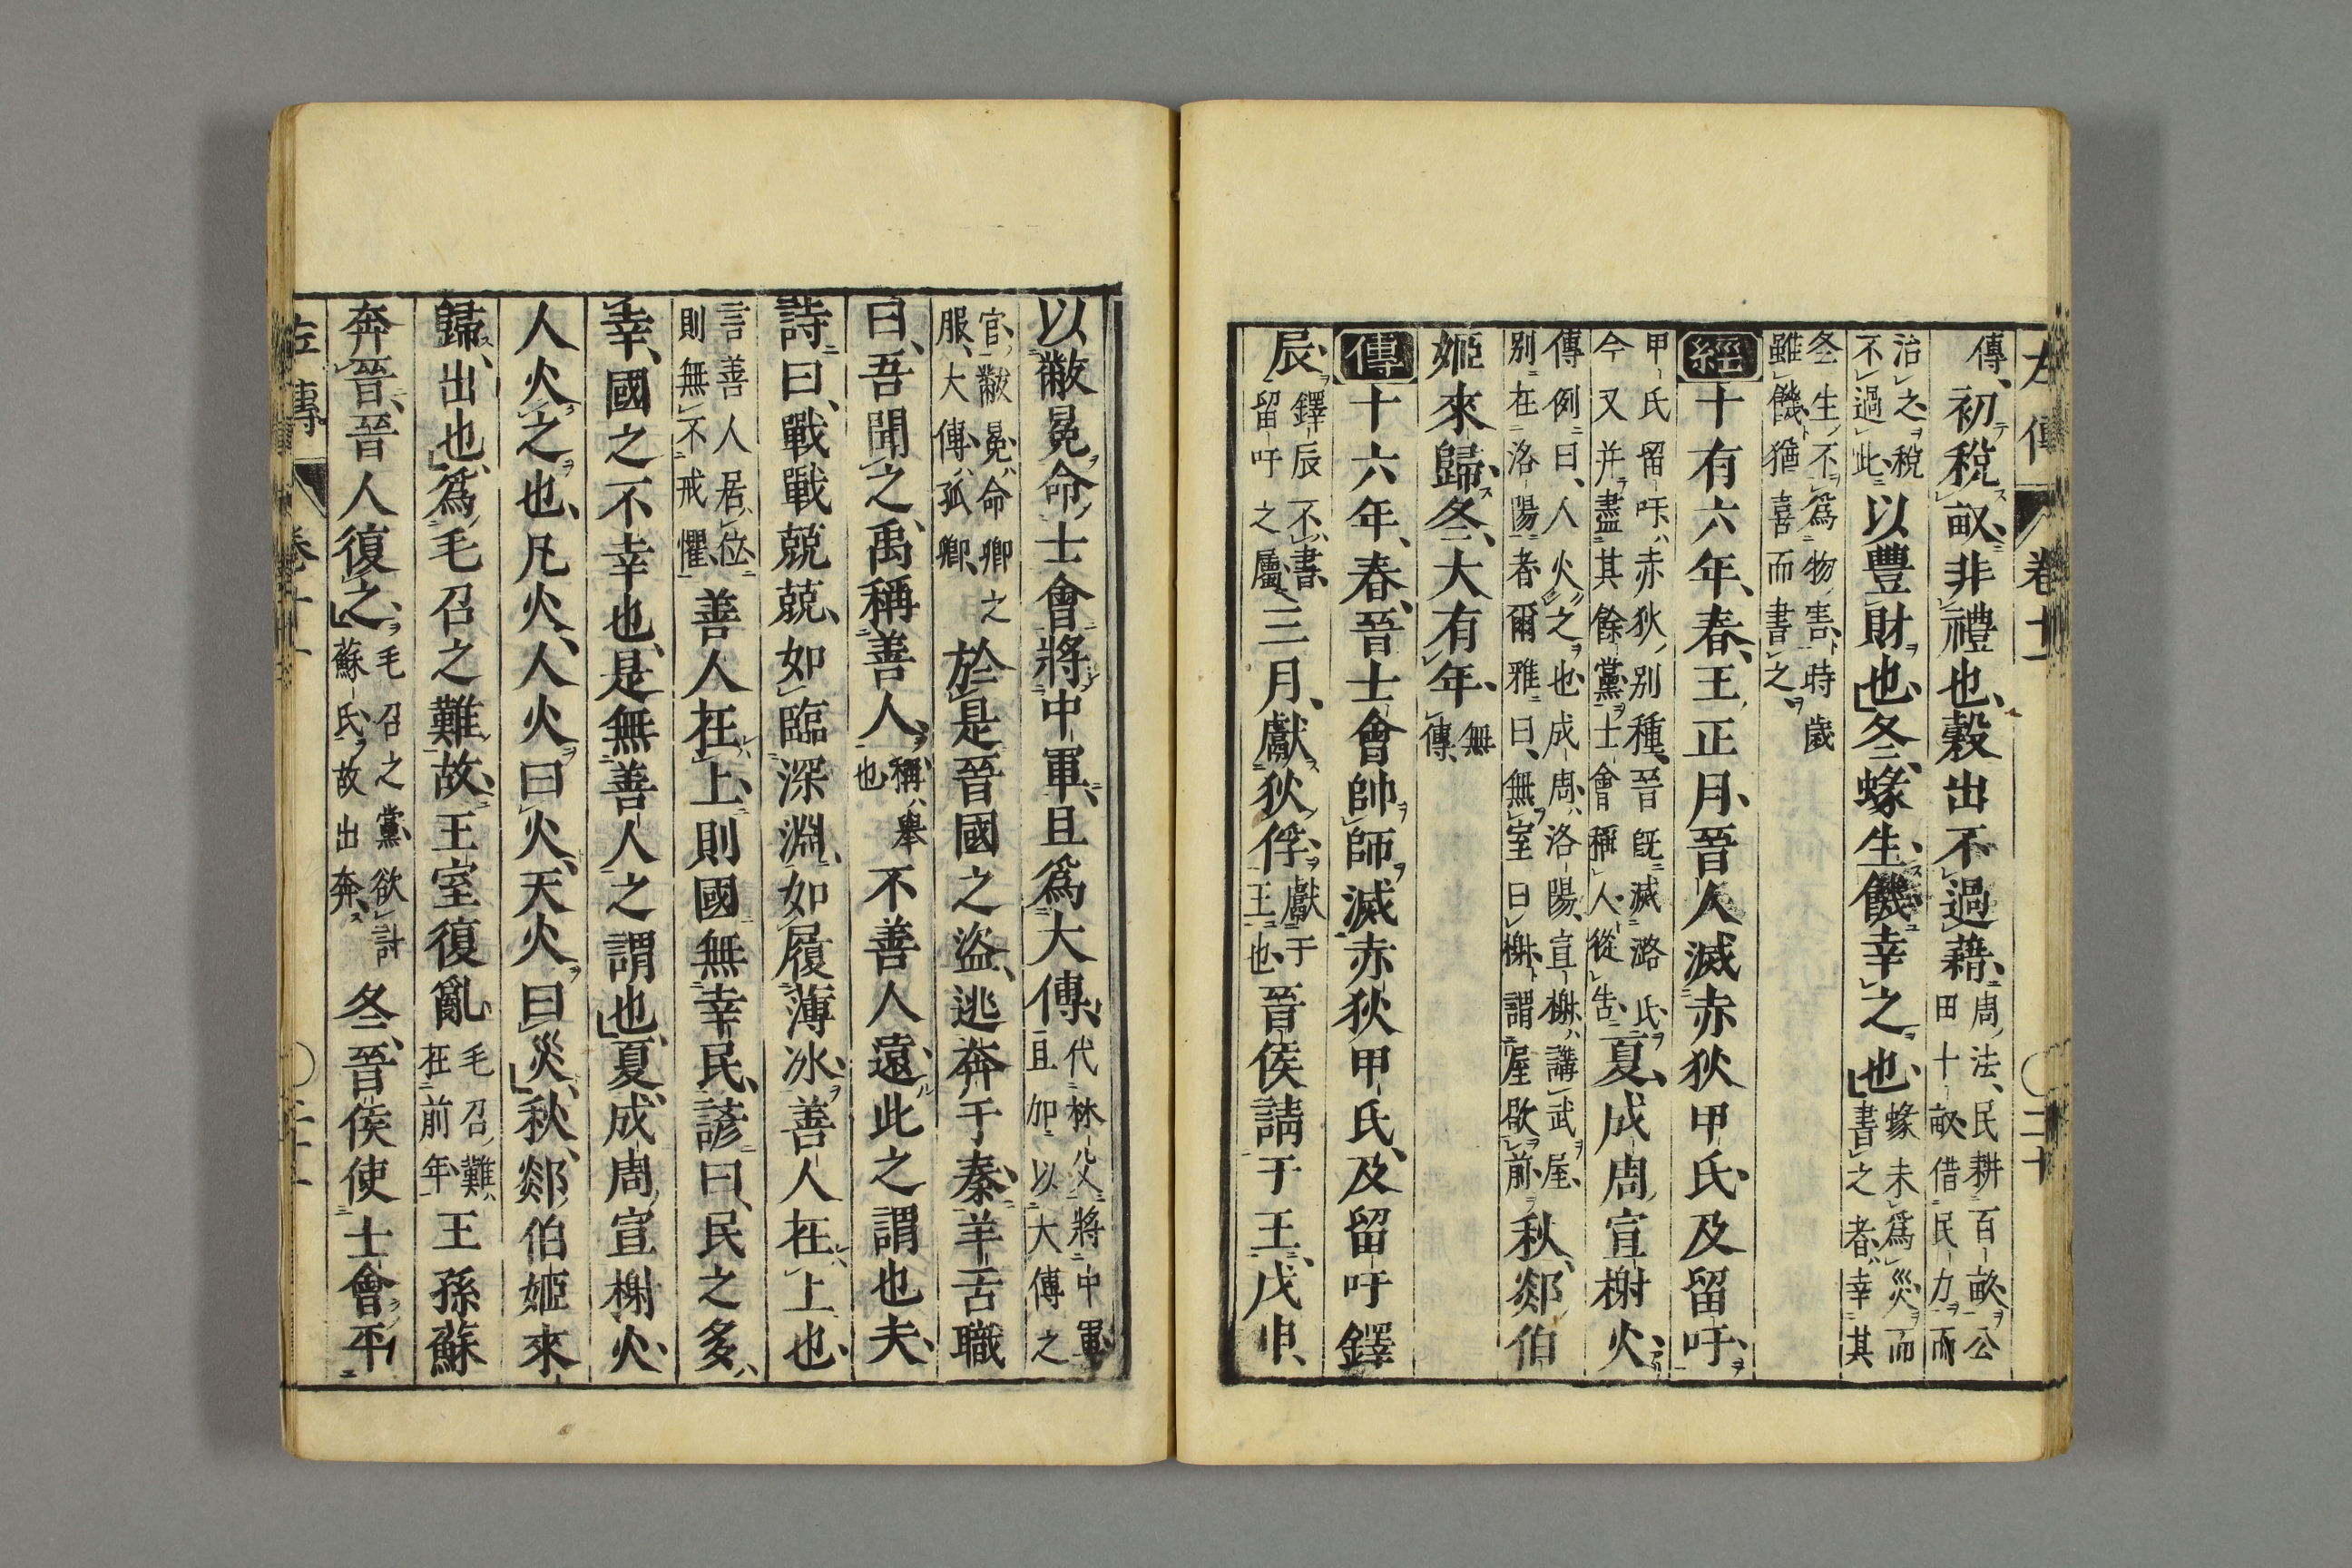 左傳 卷十一 〇二十
傳、初稅畝、非禮也、穀出不過藉、周法、民耕百畝、公田十畝、借民力而
治之、稅不過此、以豐財也、冬、蝝生、饑、幸之也、蝝未爲災而書之者、幸其
冬生、不爲物害、時歲雖饑、猶喜而書之、
經十有六年、春、王正月、晉人滅赤狄甲氏、及留吁、
甲氏留吁、赤狄別種、晉旣滅潞氏、今又并盡其餘黨、士會稱人、從告、夏、成周宣榭火、
傳例曰、人火之也、成周、洛陽、宣榭、講武屋、別在洛陽者、爾雅曰、無室曰榭、謂屋歇前、秋、郯伯
姬來歸、冬、大有年、無傳、
傳十六年、春、晉士會帥師滅赤狄甲氏、及留吁鐸
辰、鐸辰不書、留吁之屬、三月、獻狄俘、獻于王也、晉侯請于王、戊申、
以黻冕命士會將中軍、且爲大傅、代林父將中軍、且加以大傅之
官、黻冕、命卿之服、大傅、孤卿、於是晉國之盜、逃奔于秦、羊舌職
曰、吾聞之、禹稱善人、稱、舉也、不善人遠、此之謂也夫、
詩曰、戰戰兢兢、如臨深淵、如履薄冰、善人在上也、
言善人居位、則無不戒懼、善人在上、則國無幸民、諺曰、民之多
幸、國之不幸也、是無善人之謂也、夏、成周宣榭火、
人火之也、凡火、人火曰火、天火曰災、秋、郯伯姬來
歸、出也、爲毛召之難故、王室復亂、毛召難、在前年、王孫蘇
奔晉、晉人復之、毛召之黨、欲討蘇氏、故出奔、冬、晉侯使士會平
左傳 卷十一 〇二十一